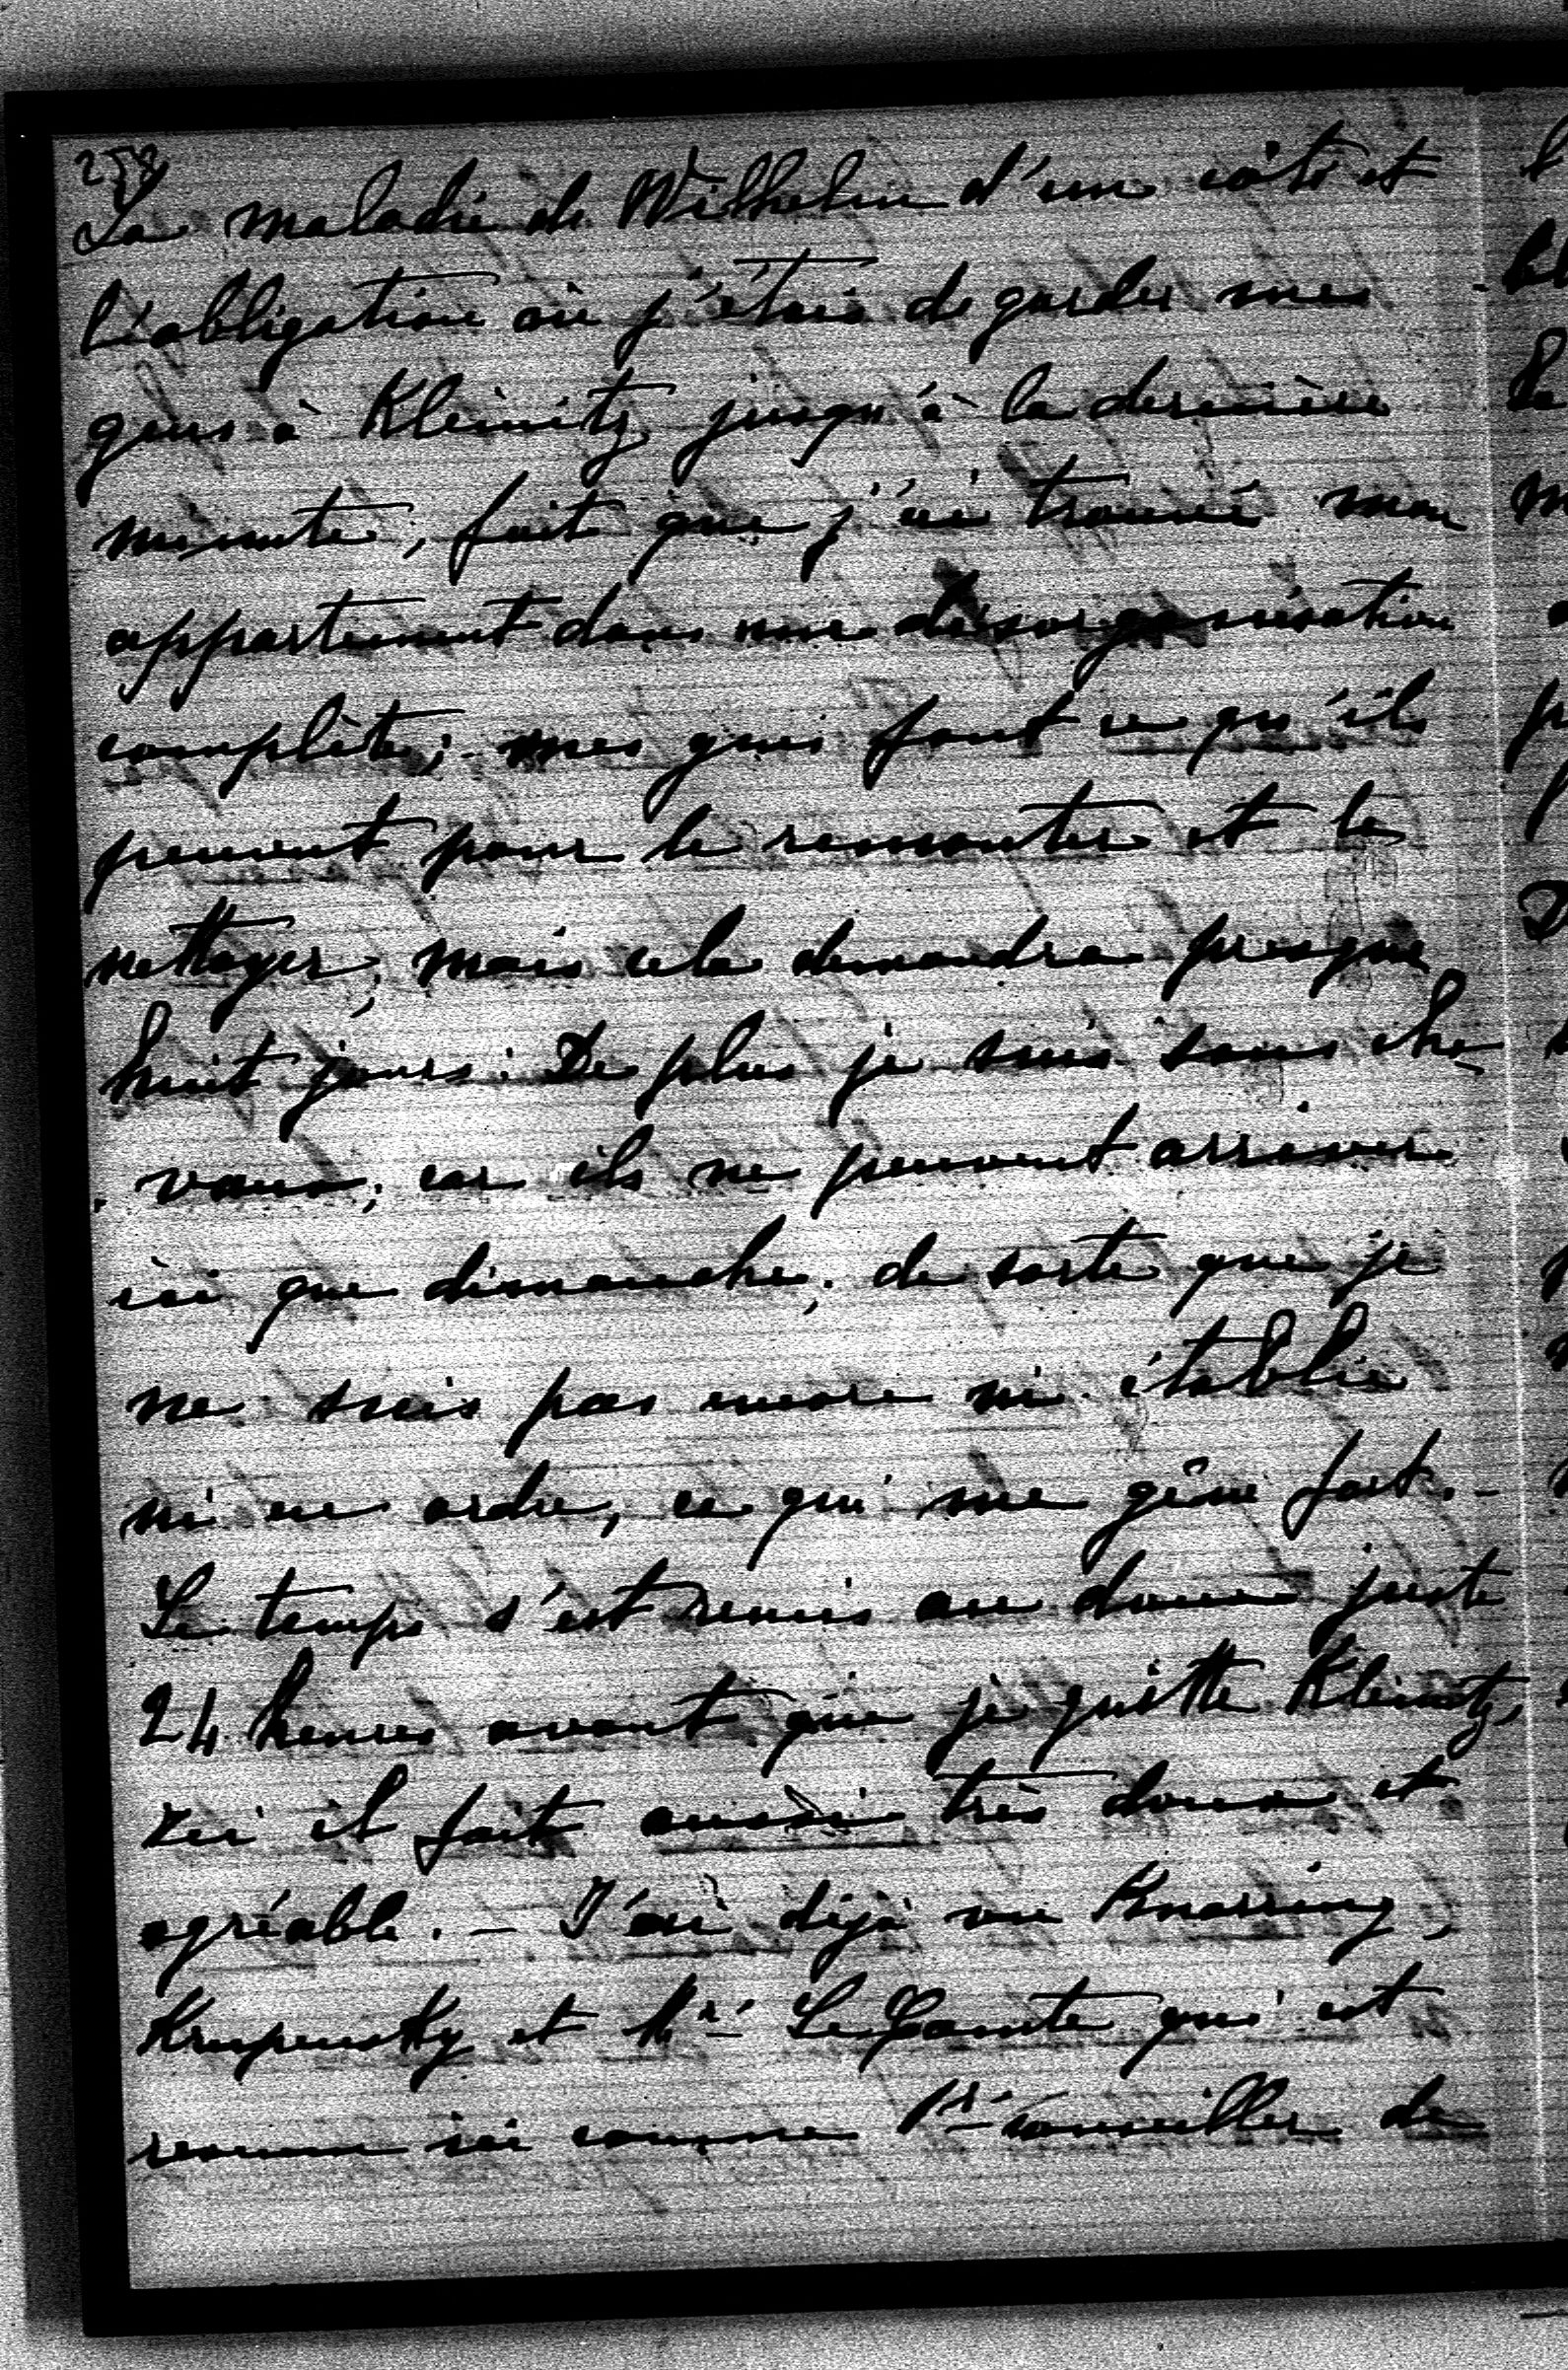 258
La maladie de Wilhelm d'un côté et
l'obligation où j'étais de garder mes
gens à Kleinitz jusqu'à la dernière
minute, fait que j'ai trouvé mon
appartement dans une désorganisation
complète; mes gens font ce qu'ils
peuvent pour le remonter et le
nettoyer, mais cela demandra presque
huit jours. De plus je suis sans che-
vaux, car ils ne peuvent arriver
ici que dimanche, de sorte que je
ne suis pas encore ni établie
ni en ordre, ce qui me gêne fort. –
Le temps s'est remis au doux juste
24 heures avant que je quitte Kleinitz,
ici il fait aussi très doux et
agréable. – J'ai déjà vu Knorring,
Krupensky et Mr. Le Comte qui est
revenu ici comme 1r conseiller de